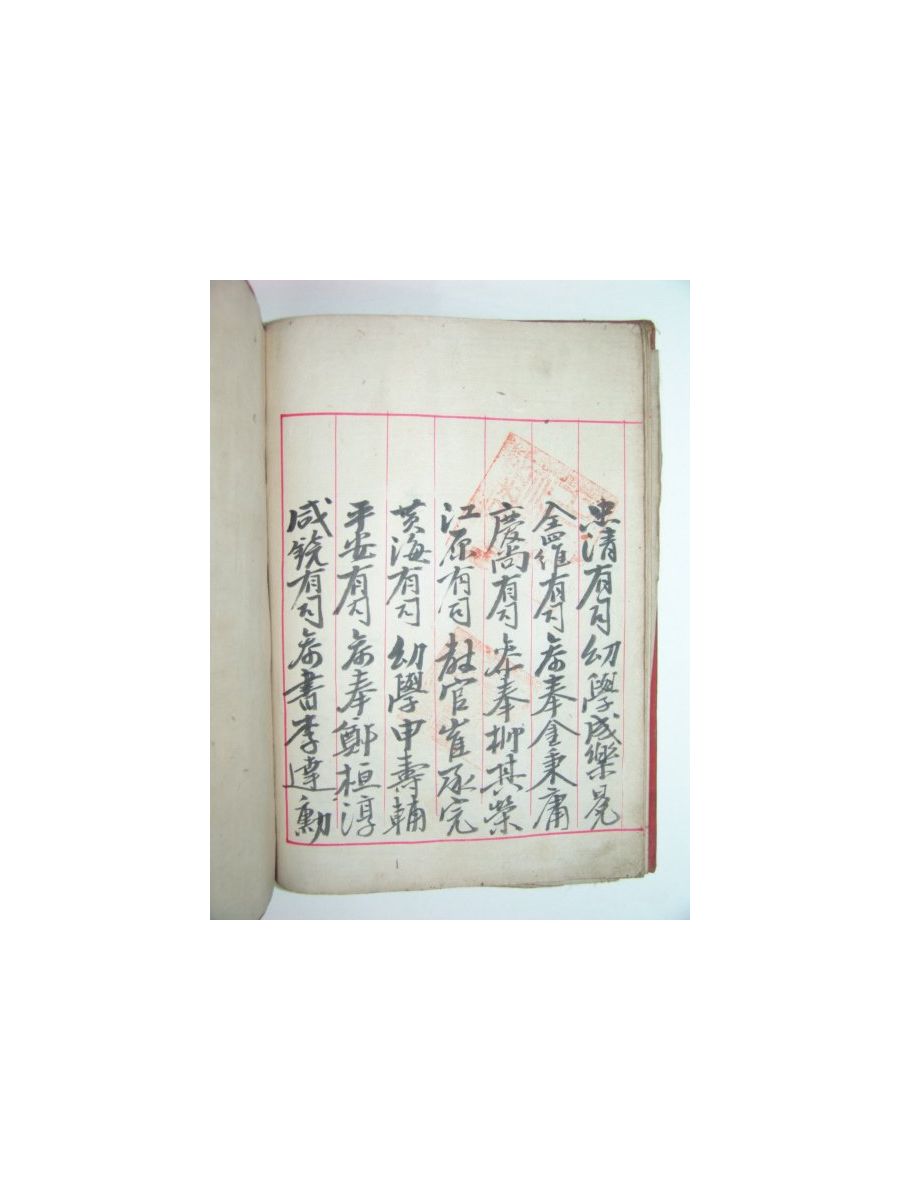 忠清有司幼學成樂晃
全羅有司參奉金秉庸
慶尚有司參奉柳其榮
江原有司教官崔承完
黃海有司幼學申壽輔
平安有司參奉鄭桓淳
咸鏡有司參書李達勳